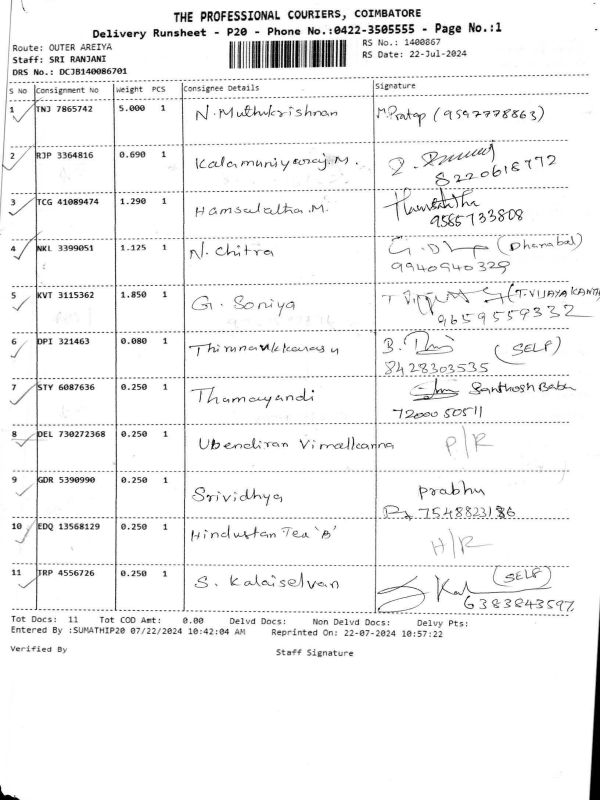 THE PROFESSIONAL COURIERS, COIMBATORE
Delivery Runsheet - P20 - Phone No.:0422-3505555 - Page No.:1
Route: OUTER AREIYA
RS No.: 1400867
Staff: SRI RANJANI
RS Date: 22-Jul-2024
DRS No.: DCJB140086701
S No Consignment No Weight PCS Consignee Details Signature
1 TNJ 7865742 5.000 1 N. Muthukrishnan M Pratap (9597778863)
2 RJP 3364816 0.690 1 Kalamuniyaraj. M.
8220618772
3 TCG 41089474 1.290 1 Hamsalatha. M.
9585733808
4 NKL 3399051 1.125 1 N. Chitra (Dhanabal)
9940940329
5 KVT 3115362 1.850 1 G. Soniya
9659559332
6 DPI 321463 0.080 1 (SELF)
8428303535
7 STY 6087636 0.250 1 Thamayandi Santhosh Babu
7200050511
8 DEL 730272368 0.250 1 Ubendiran Vimalkanna P/R
9 GDR 5390990 0.250 1 Srividhya Prabhu
7548823186
10 EDQ 13568129 0.250 1 Hindustan Tea 'B' H/R
11 TRP 4556726 0.250 1 S. Kalaiselvan (SELF)
6383843597
Tot Docs: 11 Tot COD Amt: 0.00 Delvd Docs: Non Delvd Docs: Delvy Pts:
Entered By :SUMATHIP20 07/22/2024 10:42:04 AM Reprinted On: 22-07-2024 10:57:22
Verified By Staff Signature